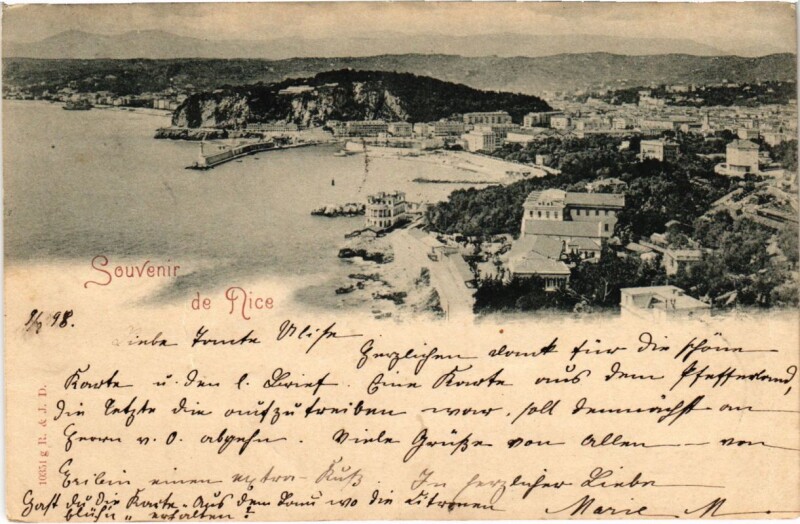 Souvenir
de Nice
9/2 98.
Liebe Tante Ulise
Herzlichen Dank für die schöne
Karte u. den l. Brief. Eine Karte aus dem Pfefferland,
die letzte die aufzutreiben war, soll demnächst an
Herrn v. O. abgehn. Viele Grüße von Allen – von
einen extra-Kuß. In herzlicher Liebe
Marie M
Hast du die Karte „Aus dem Land wo die Citronen
blühn“ erhalten?
10354 g R. & J. D.